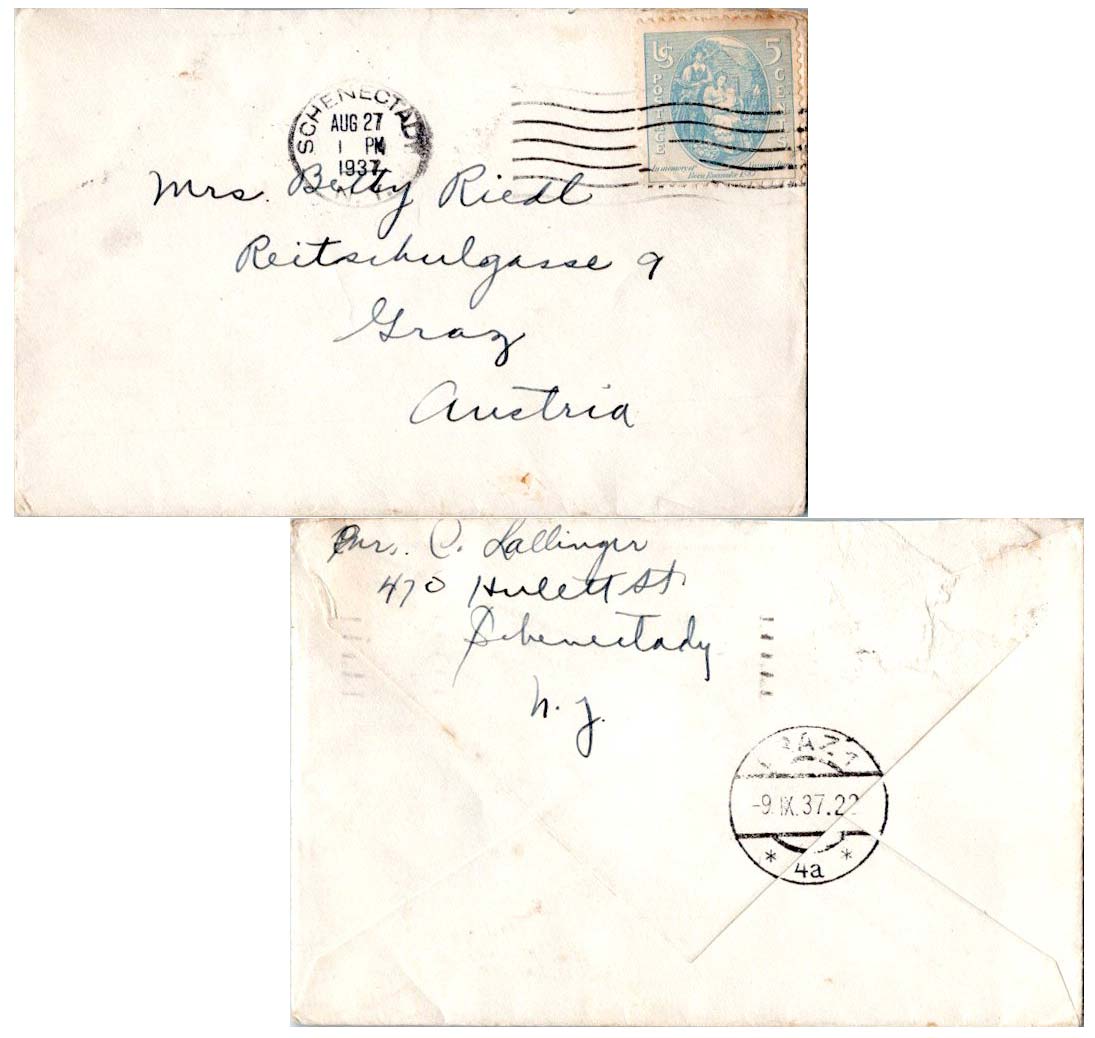 SCHENECTADY
AUG 27
1 PM
1937
N.Y.
US POSTAGE
5 CENTS
In memory of Virginia Dare
Born Roanoke 1587
Mrs. Betty Riedl
Reitschulgasse 9
Graz
Austria
Mrs. C. Lallinger
470 Hulett St
Schenectady
N. Y.
GRAZ 1
-9.IX.37.22
* 4a *